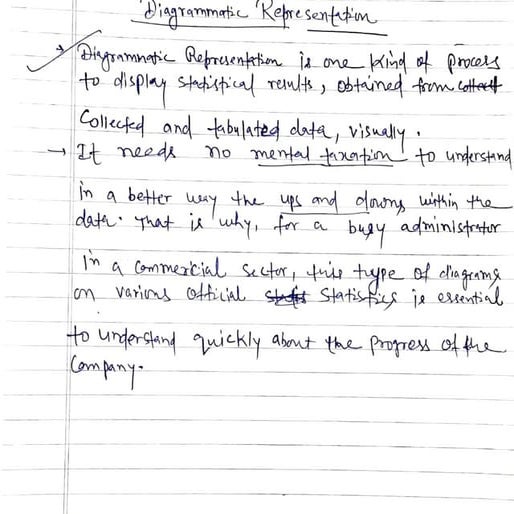 Diagrammatic Representation
→ Diagrammatic Representation is one kind of process
to display statistical results, obtained from collect
Collected and tabulated data, visually.
→ It needs no mental taxation to understand
in a better way the ups and downs, within the
data. That is why, for a busy administrator
in a commercial sector, this type of diagrams
on various official statis statistics is essential
to understand quickly about the progress of the
Company.